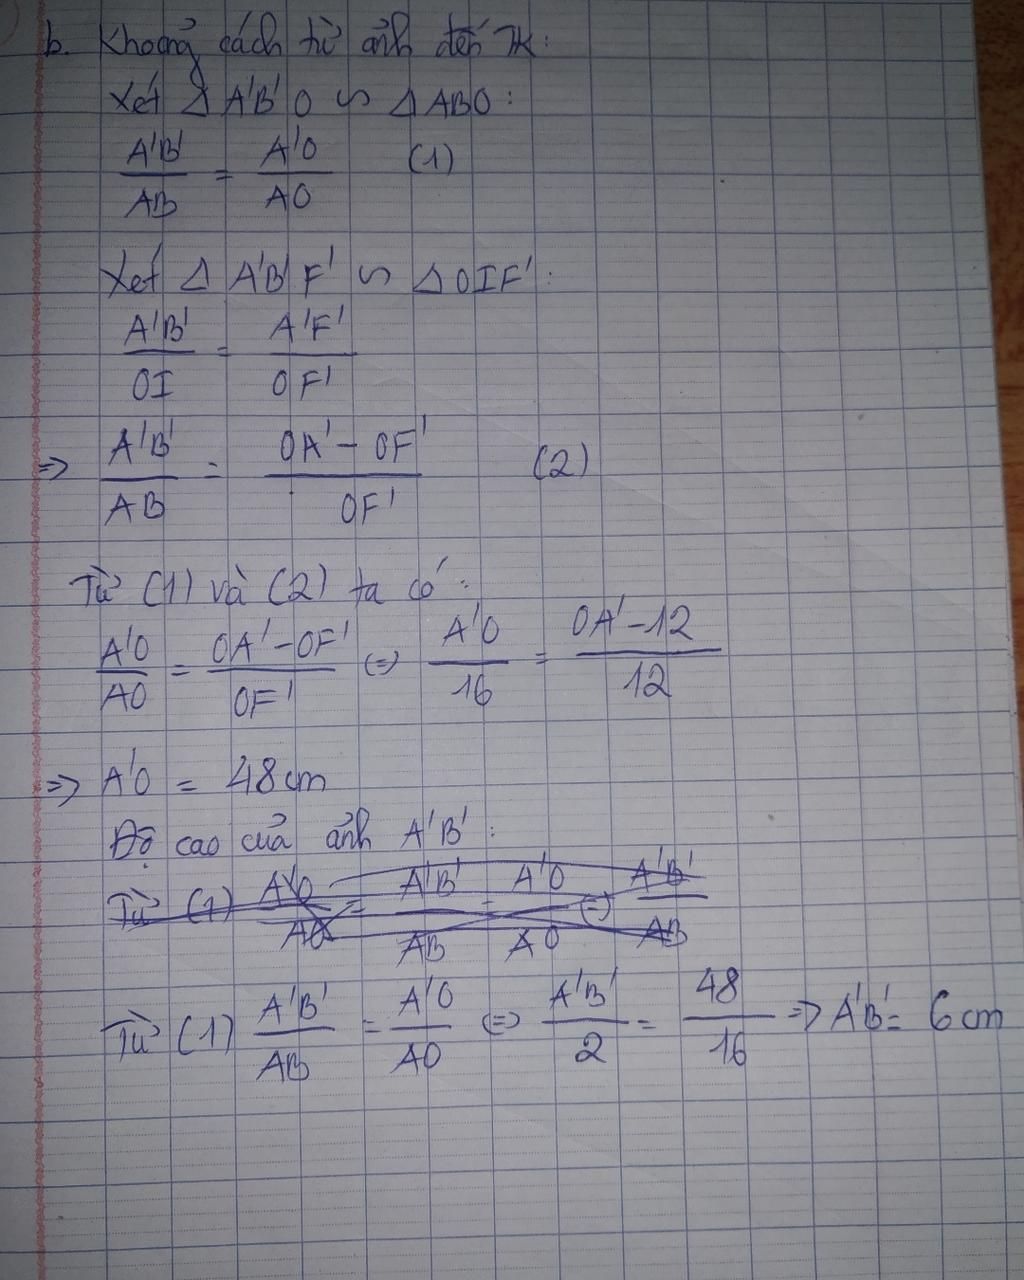 b. Khoảng cách từ ảnh đến TK:
Xét Δ A'B'O ∽ Δ ABO:
A'B'/AB = A'O/AO (1)
Xét Δ A'B'F' ∽ Δ OIF':
A'B'/OI = A'F'/OF'
=> A'B'/AB = OA' - OF'/OF' (2)
Từ (1) và (2) ta có:
A'O/AO = OA' - OF'/OF' (=) A'O/16 = OA' - 12/12
=> A'O = 48cm
Độ cao của ảnh A'B':
Từ (1) A'B'/AB = A'O/AO (=) A'B'/2 = 48/16 => A'B' = 6cm